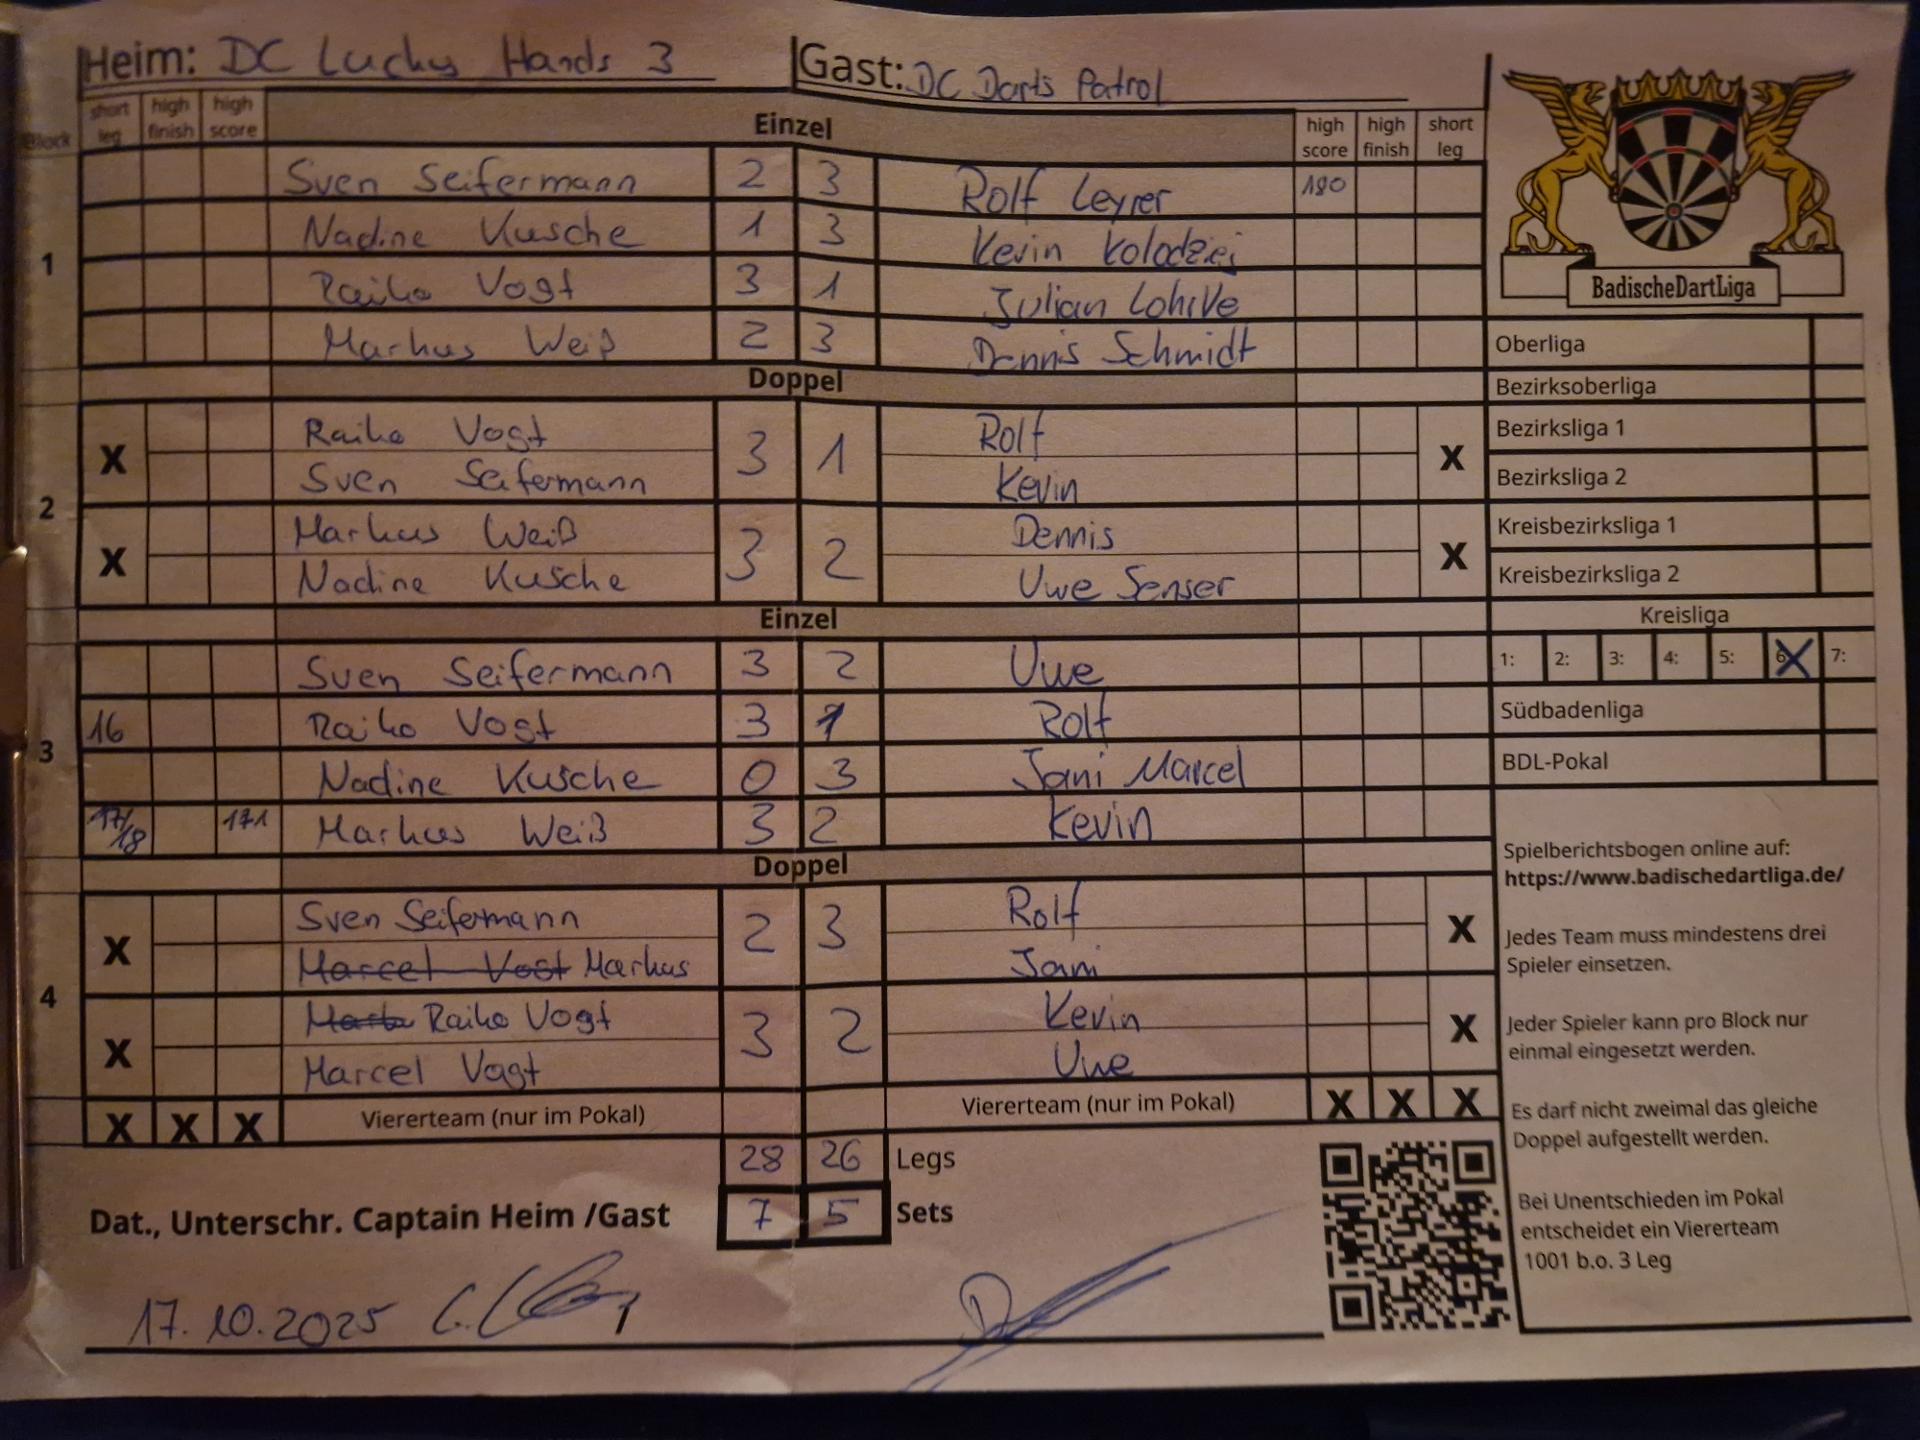 Heim: DC Luckys Hands 3 Gast: DC Darts Patrol
Block short leg high finish high score Einzel high score high finish short leg
1
Sven Seifermann 2 3 Rolf Leyrer 180
Nadine Kusche 1 3 Kevin Kolodziej
Raiko Vogt 3 1 Julian Lohrke
Markus Weiß 2 3 Dennis Schmidt
Doppel
2
X Raiko Vogt 3 1 Rolf X
Sven Seifermann Kevin
X Markus Weiß 3 2 Dennis X
Nadine Kusche Uwe Senser
Einzel
3
Sven Seifermann 3 2 Uwe
16 Raiko Vogt 3 1 Rolf
Nadine Kusche 0 3 Jani Marcel
17/18 171 Markus Weiß 3 2 Kevin
Doppel
4
X Sven Seifermann 2 3 Rolf X
Marcel Vogt Markus Jani
X Raiko Vogt 3 2 Kevin X
Marcel Vogt Uwe
X X X Viererteam (nur im Pokal) Viererteam (nur im Pokal) X X X
28 26 Legs
Dat., Unterschr. Captain Heim /Gast 7 5 Sets
17.10.2025
BadischeDartLiga
Oberliga
Bezirksoberliga
Bezirksliga 1
Bezirksliga 2
Kreisbezirksliga 1
Kreisbezirksliga 2
Kreisliga
1: 2: 3: 4: 5: 6 X 7:
Südbadenliga
BDL-Pokal
Spielberichtsbogen online auf:
https://www.badischedartliga.de/
Jedes Team muss mindestens drei
Spieler einsetzen.
Jeder Spieler kann pro Block nur
einmal eingesetzt werden.
Es darf nicht zweimal das gleiche
Doppel aufgestellt werden.
Bei Unentschieden im Pokal
entscheidet ein Viererteam
1001 b.o. 3 Leg